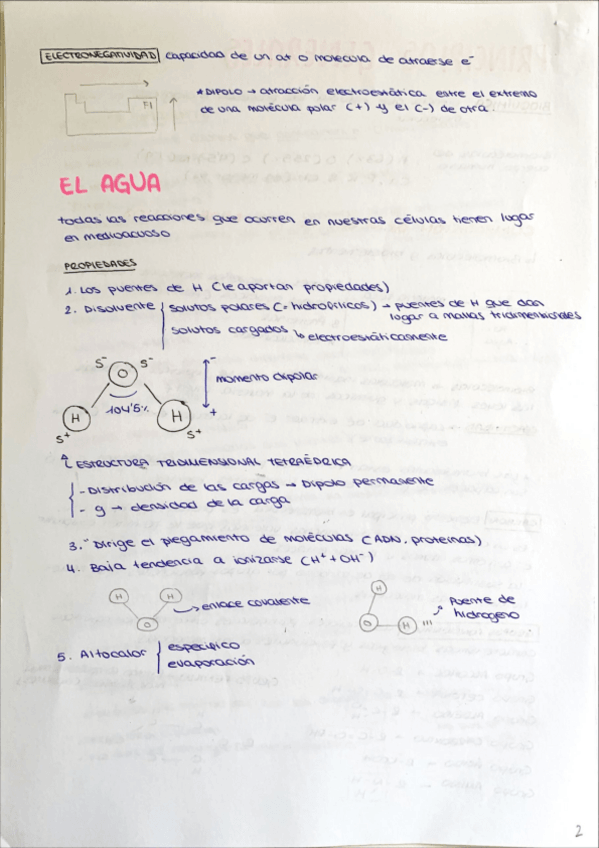 ELECTRONEGATIVIDAD capacidad de un at o molécula de atraerse e⁻
* DIPOLO → atracción electroestática entre el extremo
de una molécula polar (+) y el (-) de otra.
F1
EL AGUA
todas las reacciones que ocurren en nuestras células tienen lugar
en medioacuoso
PROPIEDADES
1. Los puentes de H (le aportan propiedades)
2. Disolvente { solutos polares (= hidrofílicos) → puentes de H que dan
lugar a mallas tridimensionales
solutos cargados ↳ electroestáticamente
S⁻ O S⁻
momento dipolar
-
+
104'5%
H H
S⁺ S⁺
ESTRUCTURA TRIDIMENSIONAL TETRAÉDRICA
- Distribución de las cargas → Dipolo permanente
- g → densidad de la carga
3. Dirige el plegamiento de moléculas (ADN, proteínas)
4. Baja tendencia a ionizarse (H⁺ + OH⁻)
H H O → enlace covalente
H O H ''' Puente de
hidrógeno
5. Alto calor { específico
evaporación
2